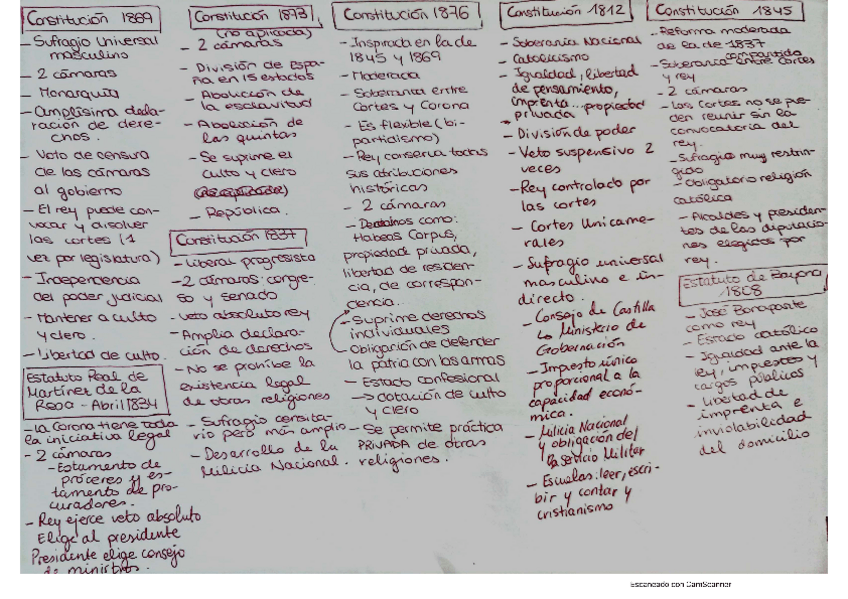 Constitución 1869
- Sufragio Universal
masculino
- 2 cámaras
- Monarquía
- Amplísima decla-
ración de dere-
chos.
- Voto de censura
de las cámaras
al gobierno
- El rey puede con-
vocar y disolver
las cortes (1
vez por legislatura)
- Independencia
del poder judicial
- Mantener a culto
y clero.
- Libertad de culto.
Estatuto Real de
Martínez de la
Rosa - Abril 1834
- La Corona tiene toda
la iniciativa legal
- 2 cámaras
- Estamento de
próceres y es-
tamento de pro-
curadores.
- Rey ejerce veto absoluto
Elige al presidente
Presidente elige consejo
de ministros.
Constitución 1873
(no aplicada)
- 2 cámaras
- División de Espa-
ña en 15 estados
- Abolición de
la esclavitud
- Abolición de
las quintas
- Se suprime el
culto y clero
- República.
Constitución 1837
- Liberal progresista
- 2 cámaras: congre-
so y senado
- Veto absoluto rey
- Amplia declara-
ción de derechos
- No se prohíbe la
existencia legal
de otras religiones
- Sufragio censita-
rio pero más amplio
- Desarrollo de la
Milicia Nacional.
Constitución 1876
- Inspirada en la de
1845 y 1869
- Moderada
- Soberanía entre
Cortes y Corona
- Es flexible (bi-
partidismo)
- Rey conserva todas
sus atribuciones
históricas
- 2 cámaras
- como:
Habeas Corpus,
propiedad privada,
libertad de residen-
cia, de correspon-
dencia...
- Suprime derechos
individuales
Obligación de defender
la patria con las armas
- Estado confesional
→ dotación de culto
y clero
- Se permite práctica
PRIVADA de otras
religiones.
Constitución 1812
- Soberanía Nacional
- Catolicismo
- Igualdad, libertad
de pensamiento,
imprenta... propiedad
privada
- División de poder
- Veto suspensivo 2
veces
- Rey controlado por
las cortes
- Cortes Unicame-
rales
- Sufragio universal
masculino e in-
directo.
- Consejo de Castilla
↳ Ministerio de
Gobernación
- Impuesto único
proporcional a la
capacidad econó-
mica.
- Milicia Nacional
y obligación del
Servicio Militar
- Escuelas: leer, escri-
bir y contar y
cristianismo
Constitución 1845
- Reforma moderada
de la de 1837
compartida
- Soberanía entre cortes
y rey
- 2 cámaras
- Las cortes no se pue-
den reunir sin la
convocatoria del
rey.
- Sufragio muy restrin-
gido
- Obligatorio religión
católica
- Alcaldes y presiden-
tes de las diputacio-
nes elegidos por
rey.
Estatuto de Bayona
1808
- José Bonaparte
como rey
- Estado católico
- Igualdad ante la
ley, impuestos y
cargos públicos
- Libertad de
imprenta e
inviolabilidad
del domicilio
Escaneado con CamScanner